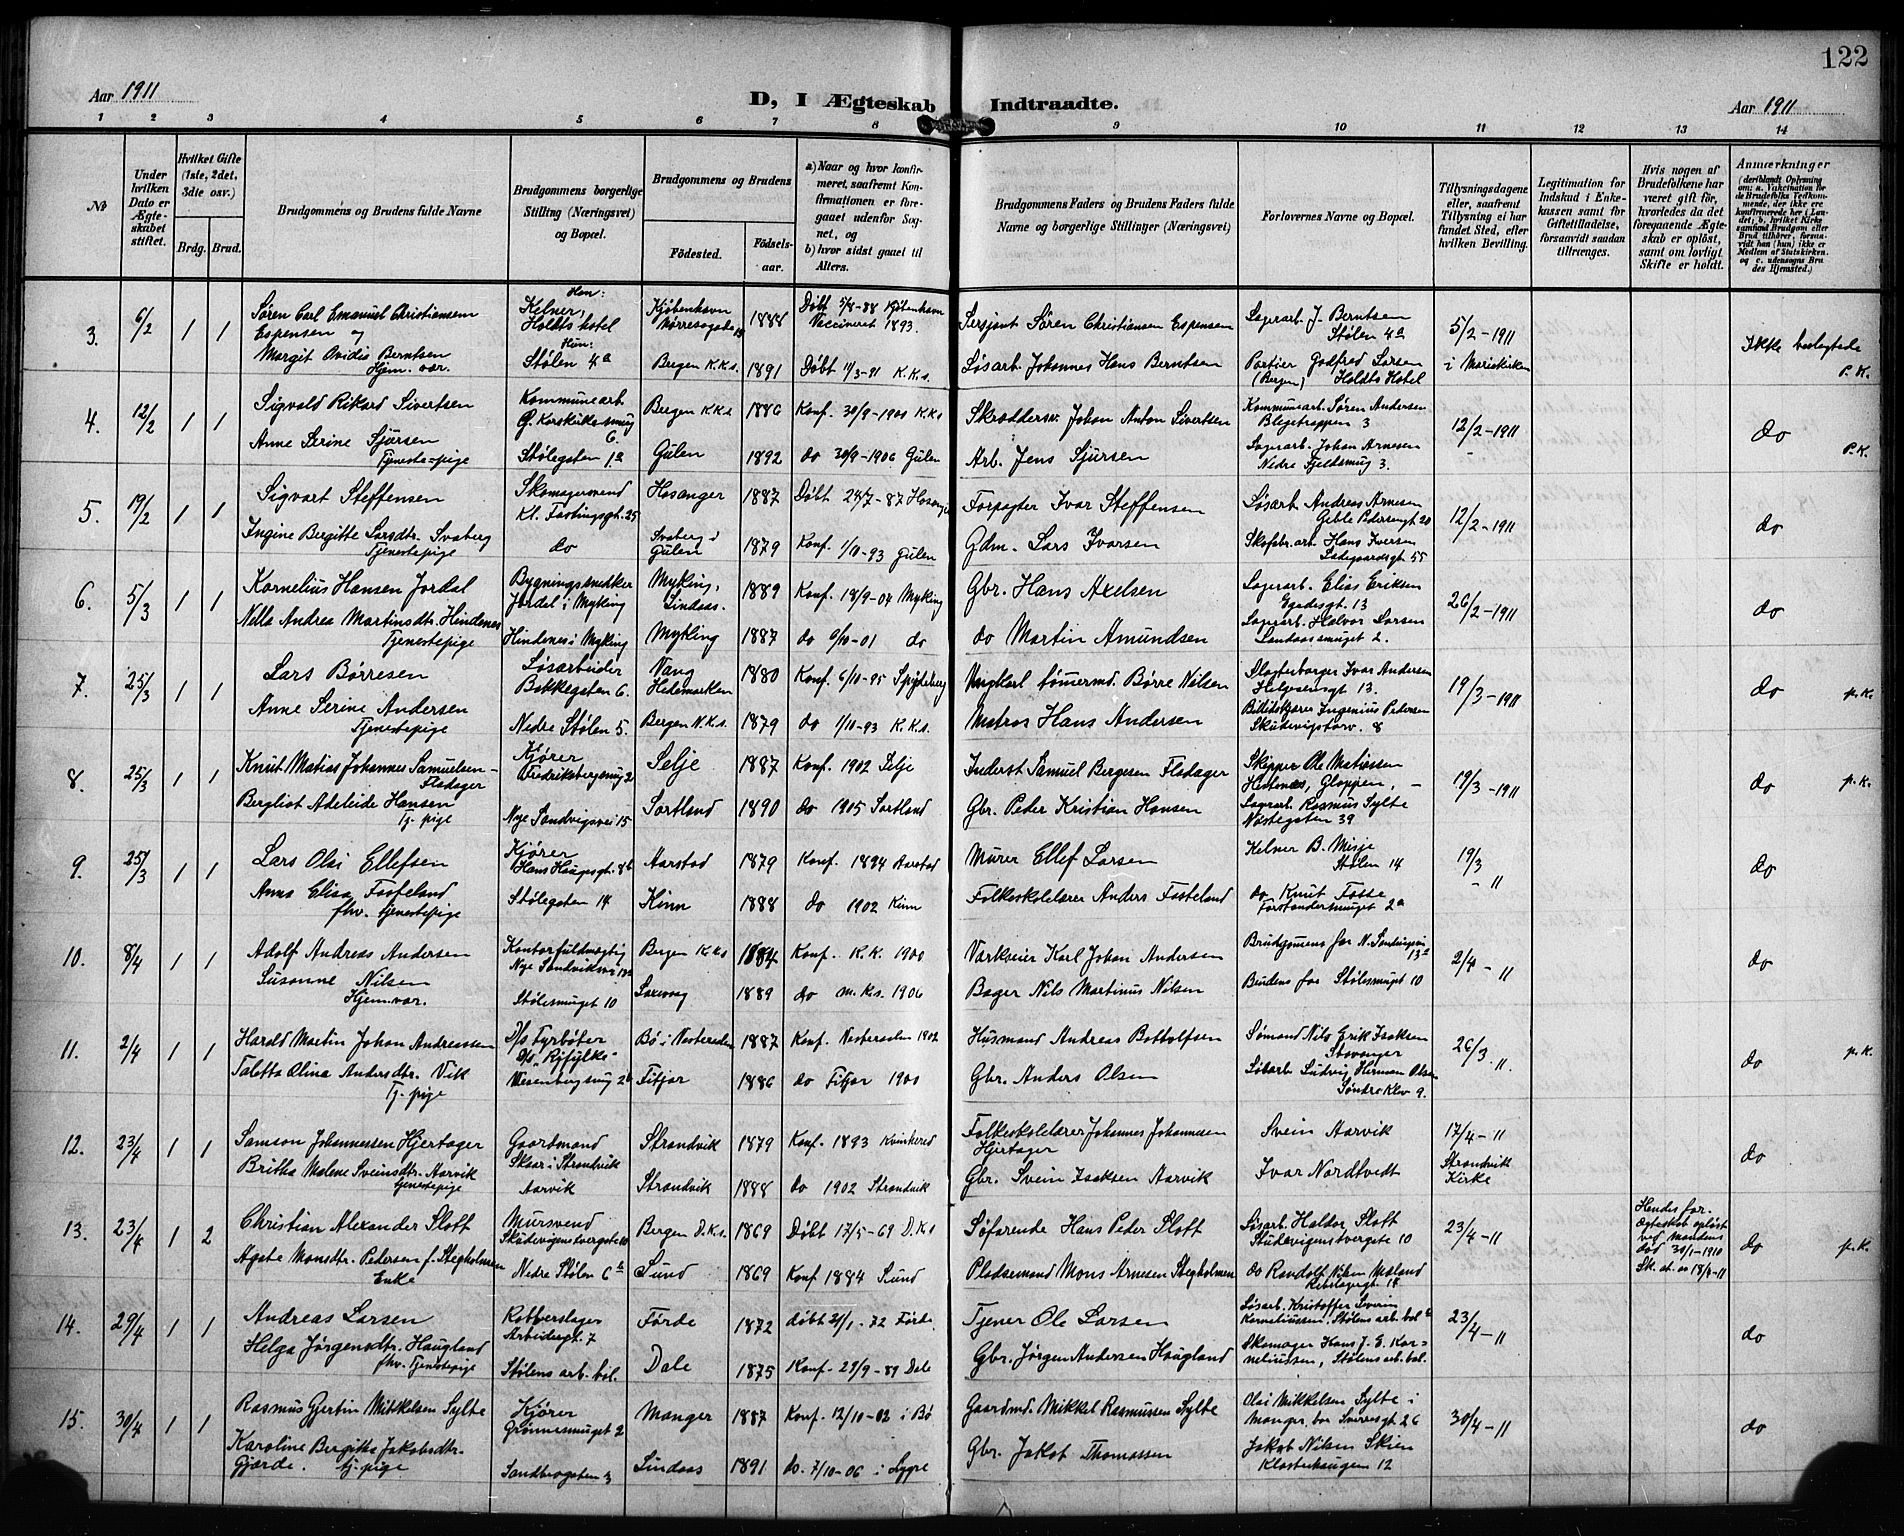 122
Aar 1911
D, I Ægteskab Indtraadte.
Aar 1911
1 2 3 4 5 6 7 8 9 10 11 12 13 14
No
Under hvilken Dato er Ægteskabet stiftet.
Hvilket Gifte (1ste, 2det, 3die osv.)
Brdg. Brud.
Brudgommens og Brudens fulde Navne
Brudgommens borgerlige Stilling (Næringsvei) og Bopæl.
Brudgommens og Brudens
Fødested.
Fødselsaar.
a) Naar og hvor konfirmeret, saafremt Konfirmationen er foregaaet udenfor Sognet, og
b) hvor sidst gaaet til Alters.
Brudgommens Faders og Brudens Faders fulde Navne og borgerlige Stillinger (Næringsvei)
Forlovernes Navne og Bopæl.
Tillysningsdagene eller, saafremt Tillysning ei har fundet Sted, efter hvilken Bevilling.
Legitimation for Indskud i Enkekassen samt for Giftetilladelse, forsaavidt saadan tiltrænges.
Hvis nogen af Brudefolkene har været gift før, hvorledes da det foregaaende Ægteskab er opløst, samt om lovligt Skifte er holdt.
Anmærkninger
(deriblandt Oplysning om: a. Vakcination for de Brudefolks Vedkommende, der ikke ere konfirmerede her i Landet; b. hvilket Kirkesamfund Brudgom eller Brud tilhører, forsaavidt han (hun) ikke er Medlem af Statskirken, og c. udensogns Brudes Hjemsted.)
3. 6/2 1 1 Søren Carl Emanuel Christiansen Espensen og Han: Kelner, Holdts hotel Kjøbenhavn 1888 Døbt 5/8-88 Kjøbenhavn Vaccineret 1893. Sersjant Søren Christiansen Espensen Lagerarb. J. Berntsen Stølen 4a 5/2-1911 Ikke beslegtede
Margit Ovidia Berntsen Hjem. vær. Hun: Stølen 4a Bergen K.K.s. 1891 Døbt 11/3-91 K.K.s. Løsarb. Johannes Hans Berntsen Portier Godfred Larsen (Bergen) Holdts Hotel i Mariekirken P.K.
4. 12/2 1 1 Sigvald Rikard Sivertsen Kommunearb. Ø. Korskirkesmug 6. Bergen K.K.s 1886 Konf. 30/9-1900 K.K.s Skræddersv. Johan Anton Sivertsen Kommunearb. Søren Andersen Blegetrappen 3 12/2-1911 do
Anne Serine Sjursen Tjenestepige Stølegaten 1a Gulen 1892 do 30/9-1906 Gulen Arb. Jens Sjursen Lagerarb. Johan Arnesen Nedre Fjeldsmug 3. P.K.
5. 19/2 1 1 Sigvart Steffensen Skomagersvend Kl. Fastingsgt. 25 Hosanger 1887 Døbt 24/7-87 Hosanger Forpagter Ivar Steffensen Løsarb. Andreas Arnesen Geble Pedersensgt 20 12/2-1911 do
Ingine Bergitte Larsdtr. Svaberg Tjenestepige do Svaberg i Gulen 1879 Konf. 1/10-93 Gulen Gdm. Lars Ivarsen Skofabr.arb. Hans Iversen Ladegaardsgt. 55
6. 5/3 1 1 Kornelius Hansen Jordal Bygningssnedker Jordal i Myking Myking, Lindaas. 1889 Konf. 18/9-04 Myking Gbr. Hans Axelsen Lagerarb. Elias Eriksen Egedesgt. 13 26/2-1911 do
Nella Andrea Martinsdtr. Hindenes Tjenestepige Hindenes i Myking Myking 1887 do 6/10-01 do do Martin Amundsen Lagerarb. Halvor Larsen Landaassmuget 2.
7. 25/3 1 1 Lars Børresen Løsarbeider Bakkegaten 6. Vang Hedemarken 1880 Konf. 6/10-95 Spydeberg Ungkarl tømermd. Børre Nilsen Slagterborger Ivar Andersen Helgesensgt 13. 19/3-1911 do p.K.
Anne Serine Andersen Tjenestepige Nedre Stølen 5. Bergen N.K.s. 1879 do 1/10-93 K.K.s. Matros Hans Andersen Ingenius Pedersen Skudevigstorv. 8
8. 25/3 1 1 Knut Matias Johannes Samuelsen Fladager Kjører Fredriksbergsmug 2 Selje 1887 Konf. 1902 Selje Inderst Samuel Bergesen Fladager Skipper Ole Matiassen Hestenæs, Gloppen, 19/3-1911 do p.K.
Bergliot Adeleide Hansen Tj. pige Nye Sandvigsvei 15 Sortland 1890 do 1905 Sortland Gbr. Peder Kristian Hansen Lagerarb. Rasmus Sylte Nøstegaten 39
9. 25/3 1 1 Lars Olai Ellefsen Kjører Hans Haugesgt. 8b Aarstad 1879 Konf. 1894 Aarstad Murer Ellef Larsen Kelner B. Misje Stølen 14 19/3 - 11 do
Anna Elisa Fasteland fhv. tjenestepige Stølegaten 14. Kinn 1888 do 1902 Kinn Folkeskolelærer Anders Fasteland do Knut Fosse Forstandersmuget 2a
10. 8/4 1 1 Adolf Andreas Andersen Kontorfuldmægtig Nye Sandviksvei 13a Bergen K.K.s 1884 Konf. K.K. 1900 Varkveier Karl Johan Andersen Brudgomens far N. Sandvigsvei 13a 2/4-11 do
Susanne Nilsen Hjem. vær. Stølesmuget 10 Laxevaag 1889 do M.K.s. 1906 Bager Nils Martinus Nilsen Brudens far Stølesmuget 10
11. 2/4 1 1 Harald Martin Johan Andreassen D/s Fyrbøter D/s "Ryfylke" Bø i Vesteraalen 1887 Konf. Vesteraalen 1902 Husmand Andreas Botholfsen Sømand Nils Erik Isaksen Stavanger 26/3-11. do p.K.
Taletta Olina Andersdtr. Vik Tj. pige Wesenbergsmug 2b Fitjar 1886 do Fitjar 1900 Gbr. Anders Olsen Løsarb. Ludvig Herman Olsen Søndre Klev 9.
12. 23/4 1 1 Samson Johannessen Hjertager Gaardmand Skaar i Strandvik Strandvik 1879 Konf. 1893 Kvinherred Folkeskolelærer Johannes Johannesen Hjertager Svein Aarvik 17/4-11 do
Britha Malene Sveinsdtr. Aarvik tjenestepige Aarvik Strandvik 1888 do 1902 Strandvik Gbr. Svein Isaksen Aarvik Ivar Nordtvedt Strandvik Kirke
13. 23/4 1 2 Christian Alexander Slott Mursvend Skudevigens tvergate 10 Bergen D.K.s. 1869 Døbt 17/5-69 D.K.s Søfarende Hans Peder Slott Løsarb. Haldor Slott Skudevigenstvergate 10 23/4-11 Hendes for. ægteskab opløst ved mandens død 30/1-1910 Sk. at. as 18/4-11 do p.K.
Agate Monsdtr. Pedersen f. Stegholmen Enke Nedre Stølen 6a Sund 1869 Konf 1884 Sund Pladsemand Mons Arnesen Stegholmen do Randolf Nilsen Mæland
14. 29/4 1 1 Andreas Larsen Kobberslager Arbeidergt. 7 Førde 1872 døbt 21/1-72 Førde Tjener Ole Larsen Løsarb. Kristoffer Severin Korneliussen, Stølens arb. bol 23/4-11 do
Helga Jørgensdtr. Haugland fhv. Tjenestepige Stølens arb. bol. Dale 1875 Konf. 29/9-89 Dale Gbr. Jørgen Andersen Haugland Skomager Hans J. E. Korneliussen, Stølens arb. bol.
15. 30/4 1 1 Rasmus Gjertin Mikkelsen Sylte Kjører Grønnesmuget 2 Manger 1887 Konf. 12/10-02 i Bø Gaardmd. Mikkel Rasmussen Sylte Olai Mikkelsen Sylte i Manger, bor Sverresgt 26 30/4-11 do
Karoline Bergitta Jakobsdtr. Gjærde. tj. pige Sandbrogaten 3 Lindaas 1891 do. 7/10-06 i Lygre Gbr. Jakob Thomassen Jakob Nilsen Skien Klosterhaugen 12